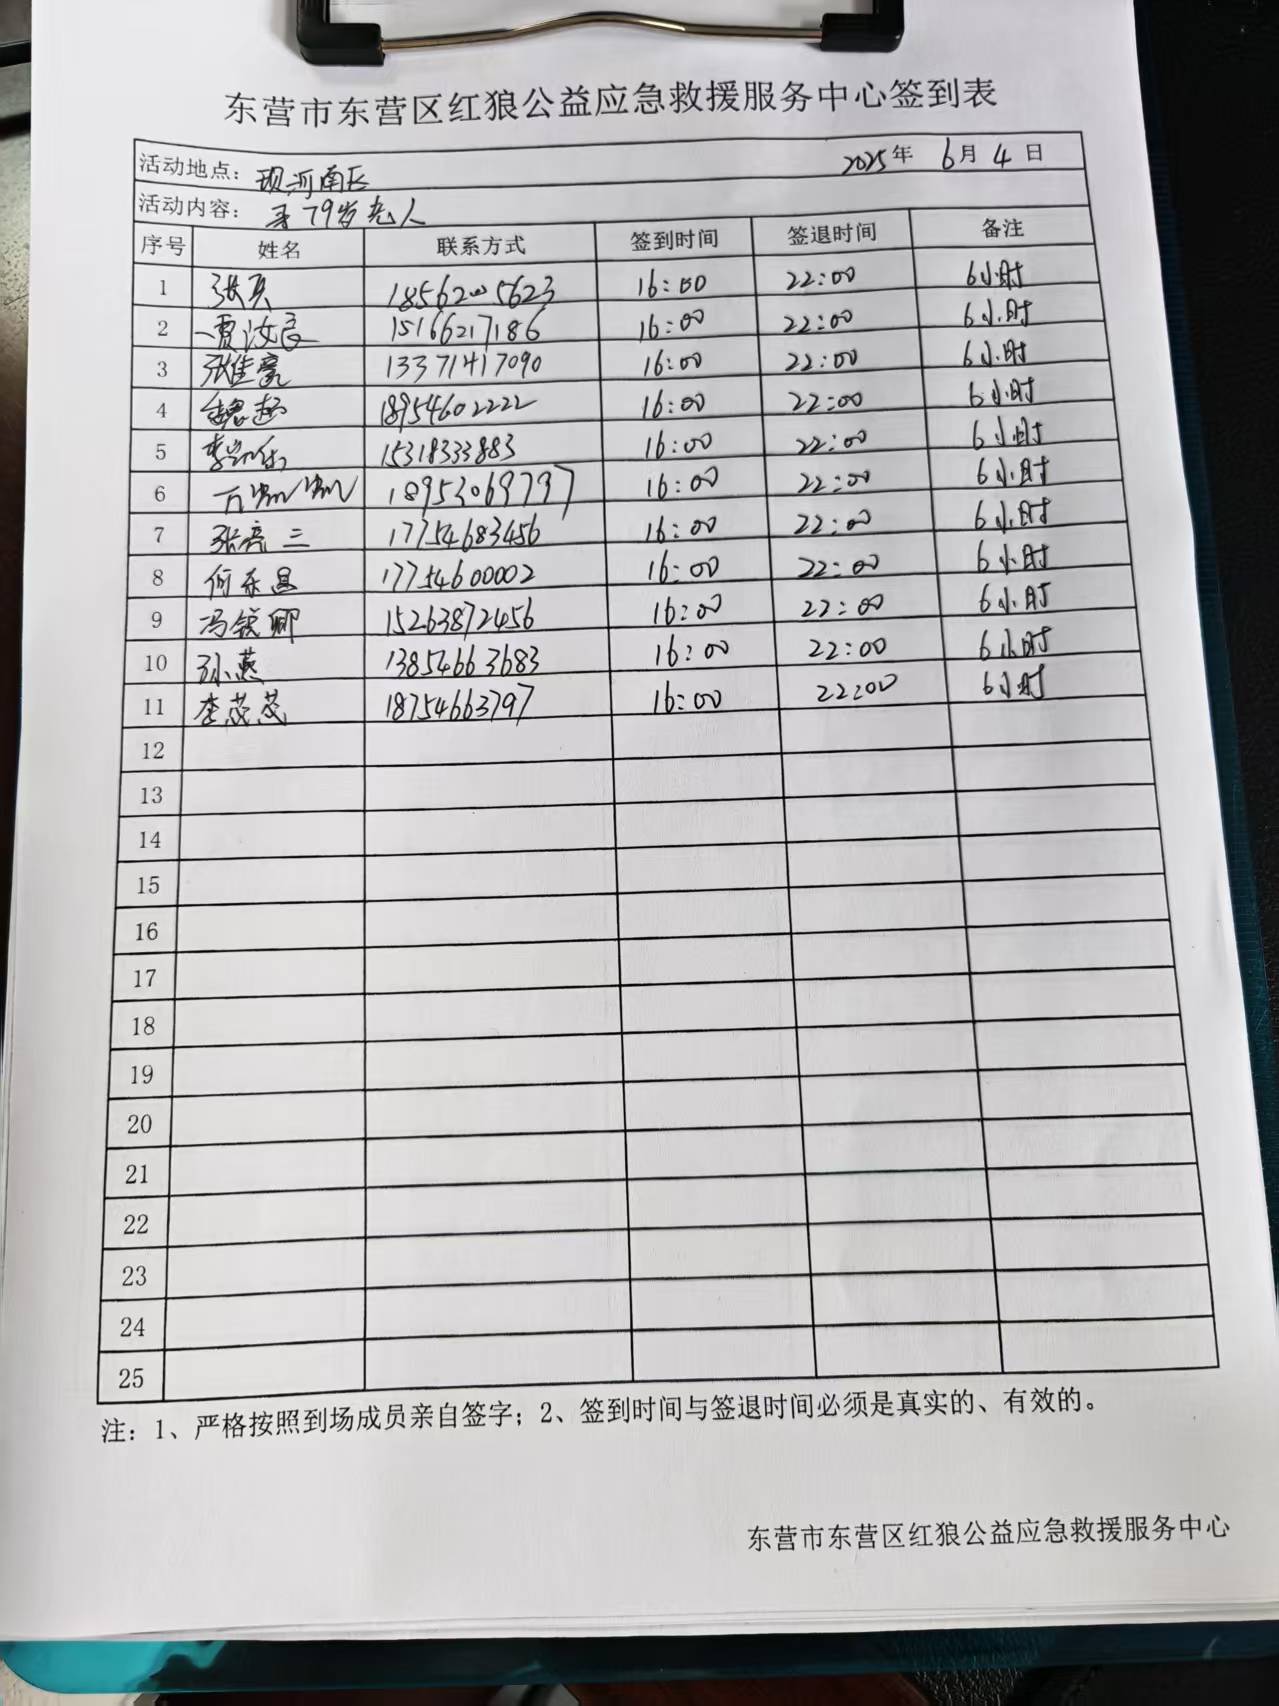 东营市东营区红狼公益应急救援服务中心签到表
活动地点：现河南区 2025年 6月 4日
活动内容：寻79岁老人
序号 姓名 联系方式 签到时间 签退时间 备注
1 张 18562005623 16:00 22:00 6小时
2 贾汝良 15166217186 16:00 22:00 6小时
3 张佳亮 13371417090 16:00 22:00 6小时
4 18954602222 16:00 22:00 6小时
5 李 15318333883 16:00 22:00 6小时
6 18953069797 16:00 22:00 6小时
7 张亮三 17754683456 16:00 22:00 6小时
8 何乐昌 17754600002 16:00 22:00 6小时
9 冯铁卿 15263872456 16:00 22:00 6小时
10 孙燕 13854663683 16:00 22:00 6小时
11 李茂茂 18754663797 16:00 22:00 6小时
12
13
14
15
16
17
18
19
20
21
22
23
24
25
注：1、严格按照到场成员亲自签字；2、签到时间与签退时间必须是真实的、有效的。
东营市东营区红狼公益应急救援服务中心